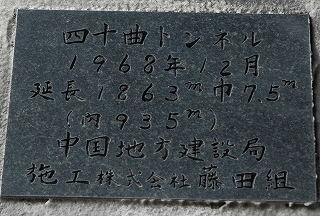 四十曲トンネル
1968年12月
延長1863m巾7.5m
(内935m)
中国地方建設局
施工株式会社藤田組